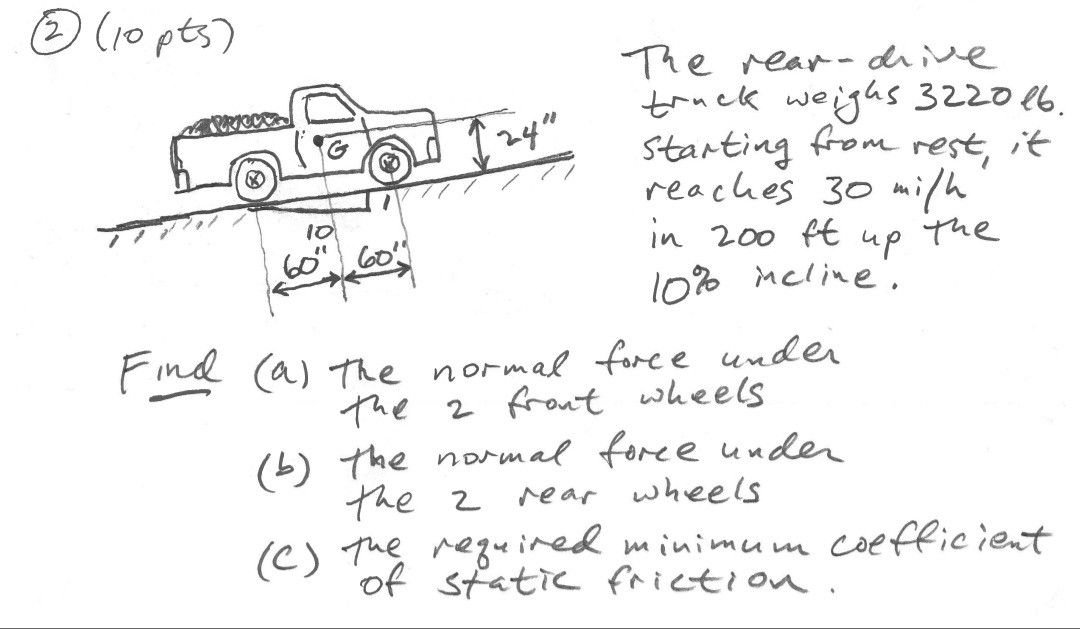 ② (10 pts)
G
24"
1
10
60" 60"
The rear-drive
truck weighs 3220 lb.
Starting from rest, it
reaches 30 mi/h
in 200 ft up the
10% incline.
Find (a) the normal force under
the 2 front wheels
(b) the normal force under
the 2 rear wheels
(c) the required minimum coefficient
of static friction.